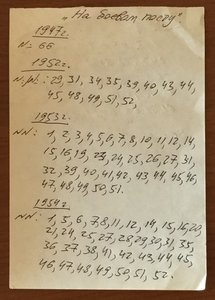 „На боевом посту"
1947г.
№ 66
1952г.
N.N.: 29, 31, 34, 35, 39, 40, 43, 44,
45, 48, 49, 51, 52,
1953г.
NN: 1, 2, 3, 4, 5, 6, 7, 8, 10, 11, 12, 14,
15, 16, 19, 23, 24, 25, 26, 27, 31,
32, 39, 40, 41, 42, 43, 44, 45, 46,
47, 48, 49, 50, 51.
1954г.
NN: 1, 5, 6, 7, 8, 11, 12, 14, 15, 16, 20,
21, 24, 25, 27, 28, 29, 30, 31, 35,
36, 37, 38, 41, 42, 43, 44, 45,
46, 47, 48, 49, 50, 51, 52.